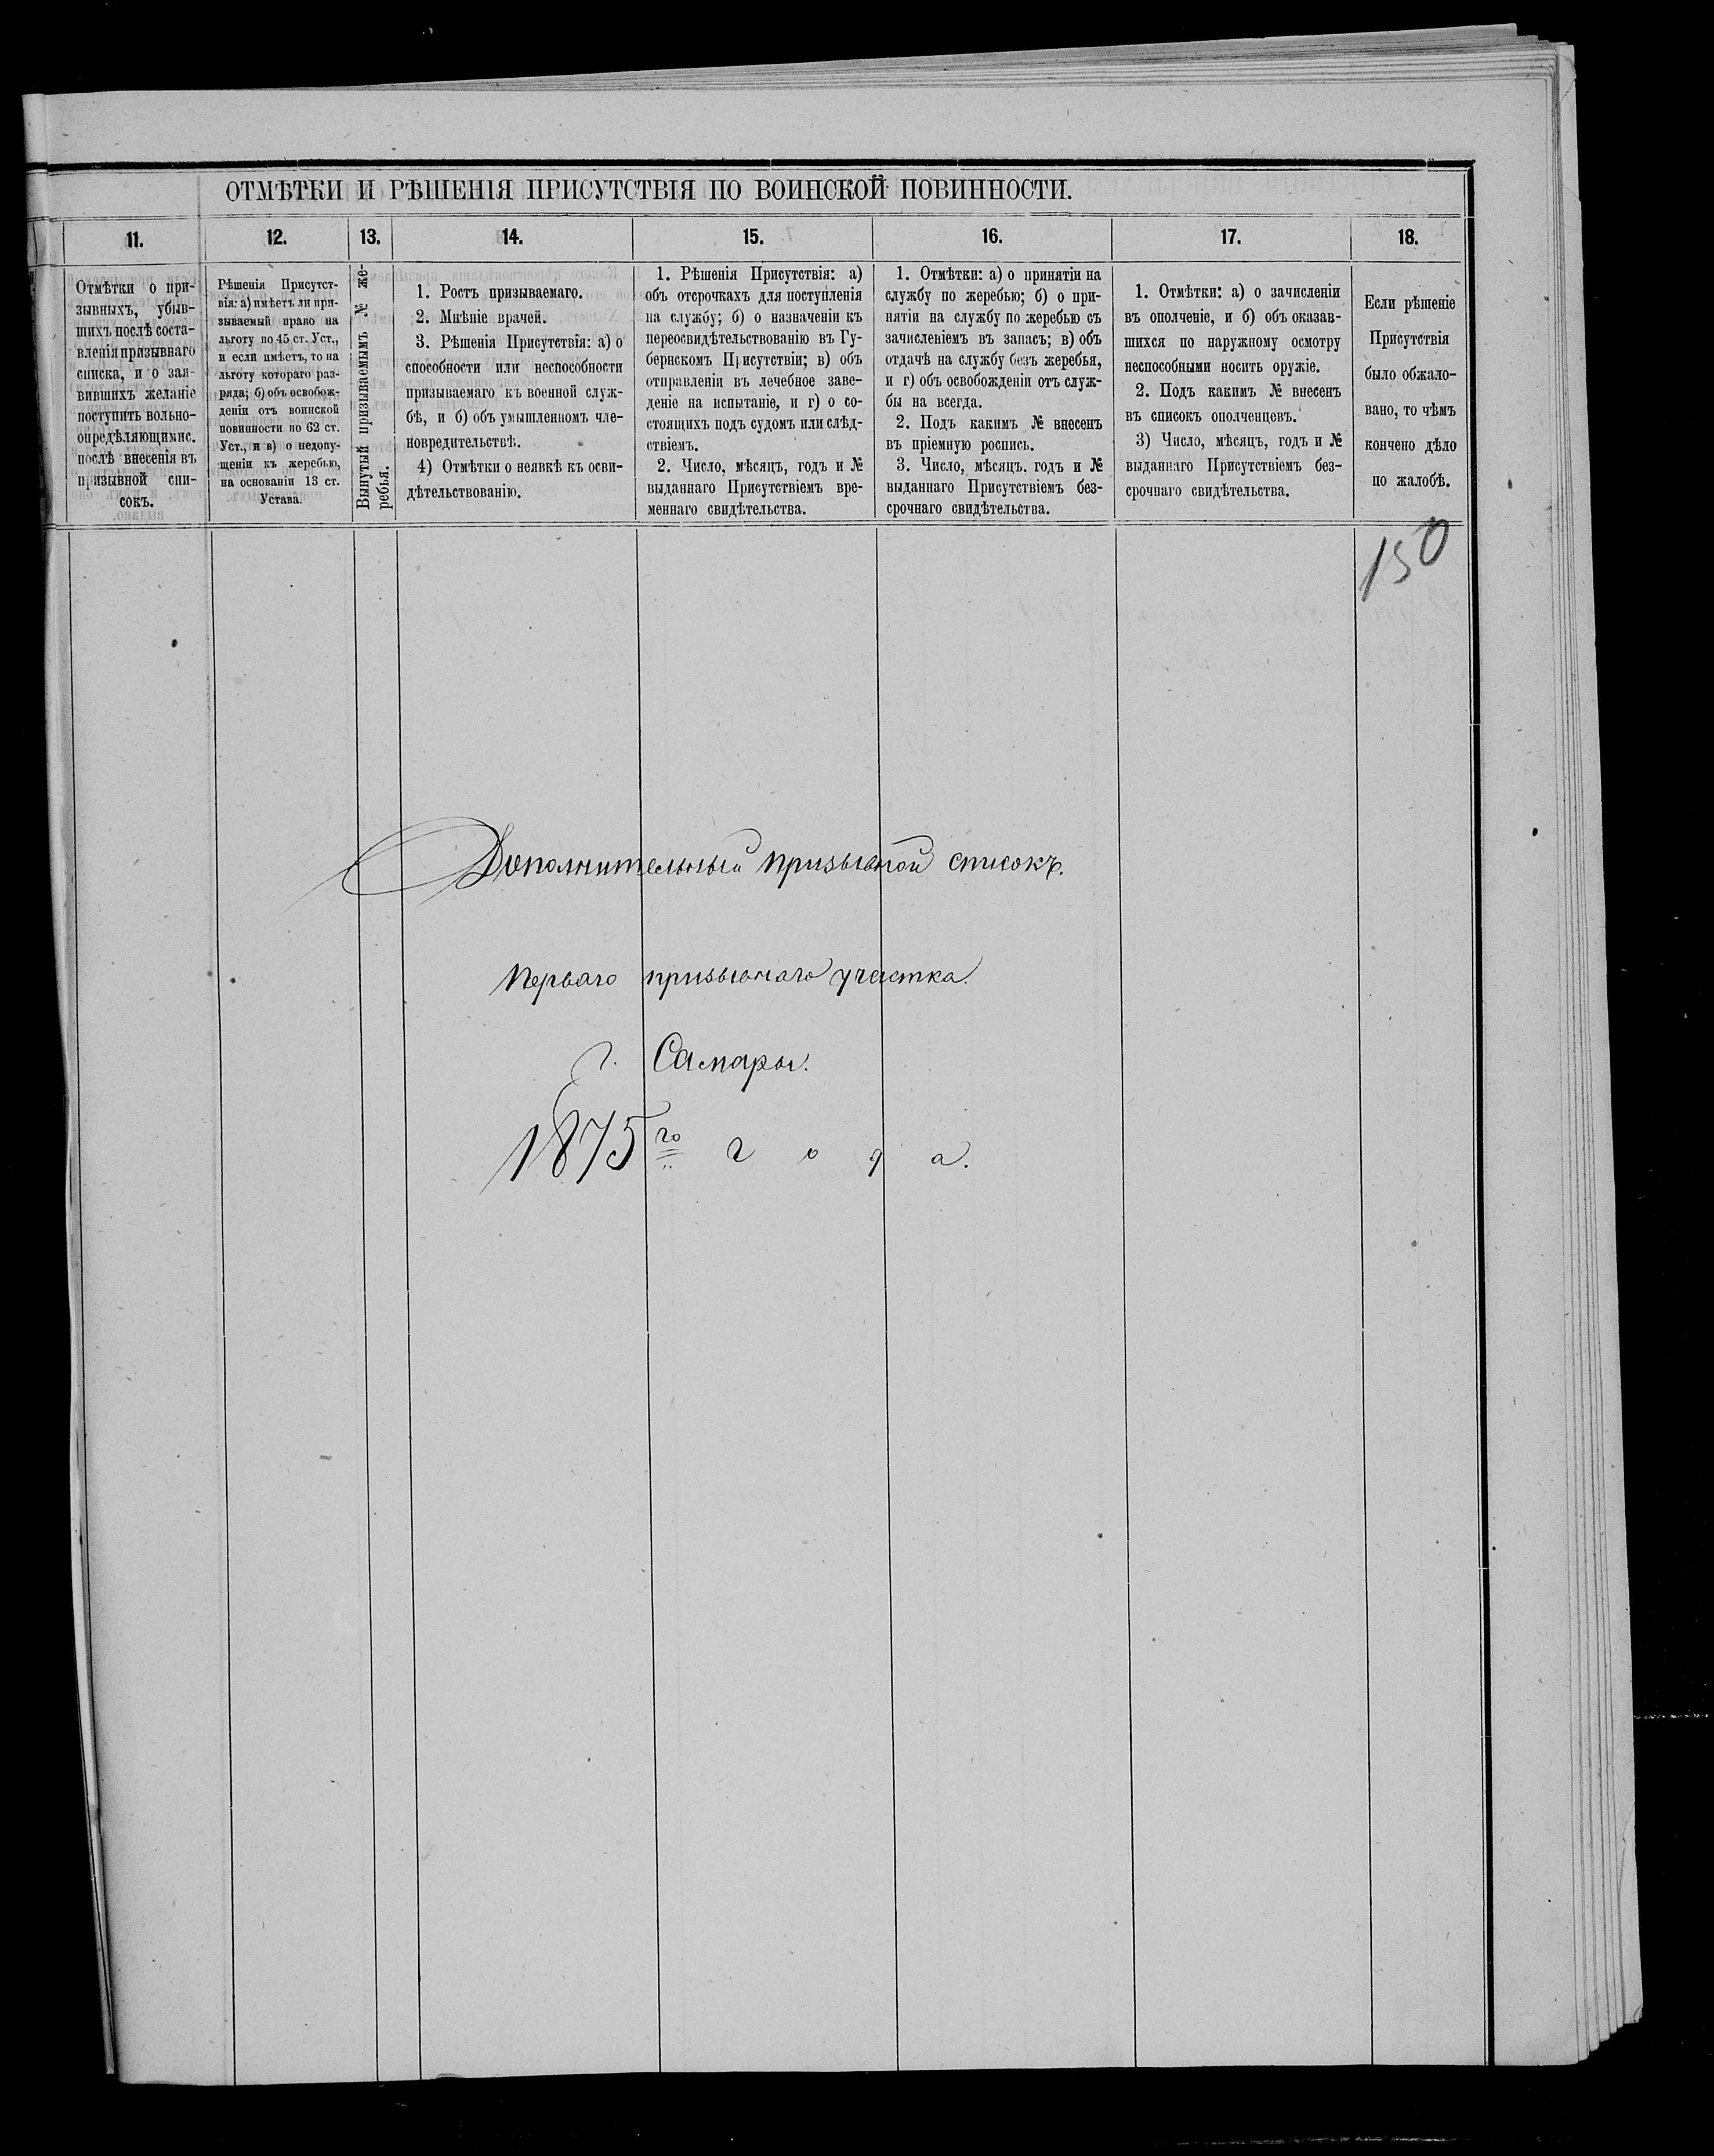 ОТМѢТКИ И РѢШЕНІЯ ПРИСУТСТВІЯ ПО ВОИНСКОЙ ПОВИННОСТИ.
11.
Отмѣтки о при-
зывныхъ, убыв-
шихъ послѣ соста-
вленія призывнаго
списка, и о зая-
вившихъ желаніе
поступить вольно-
опредѣляющимис.
послѣ внесенія въ
призывной спи-
сокъ.
12.
Рѣшенія Присутст-
вія: а) имѣетъ ли при-
зываемый право на
льготу по 45 ст. Уст.,
и если имѣетъ, то на
льготу котораго раз-
ряда; б) объ освобож-
деніи отъ воинской
повинности по 62 ст.
Уст., и в) о недопу-
щеніи къ жеребью,
на основаніи 13 ст.
Устава.
13.
Вынутый призываемымъ № же-
ребья.
14.
1. Ростъ призываемаго.
2. Мнѣніе врачей.
3. Рѣшенія Присутствія: а) о
способности или неспособности
призываемаго къ военной служ-
бѣ, и б) объ умышленномъ чле-
новредительствѣ.
4) Отмѣтки о неявкѣ къ осви-
дѣтельствованію.
15.
1. Рѣшенія Присутствія: а)
объ отсрочкахъ для поступленія
на службу; б) о назначеніи къ
переосвидѣтельствованію въ Гу-
бернскомъ Присутствіи; в) объ
отправленіи въ лечебное заве-
деніе на испытаніе, и г) о со-
стоящихъ подъ судомъ или слѣд-
ствіемъ.
2. Число, мѣсяцъ, годъ и №
выданнаго Присутствіемъ вре-
меннаго свидѣтельства.
16.
1. Отмѣтки: а) о принятіи на
службу по жеребью; б) о при-
нятіи на службу по жеребью съ
зачисленіемъ въ запасъ; в) объ
отдачѣ на службу безъ жеребья,
и г) объ освобожденіи отъ служ-
бы на всегда.
2. Подъ какимъ № внесенъ
въ пріемную роспись.
3. Число, мѣсяцъ. годъ и №
выданнаго Присутствіемъ без-
срочнаго свидѣтельства.
17.
1. Отмѣтки: а) о зачисленіи
въ ополченіе, и б) объ оказав-
шихся по наружному осмотру
неспособными носить оружіе.
2. Подъ какимъ № внесенъ
въ списокъ ополченцевъ.
3) Число, мѣсяцъ, годъ и №
выданнаго Присутствіемъ без-
срочнаго свидѣтельства.
18.
Если рѣшеніе
Присутствія
было обжало-
вано, то чѣмъ
кончено дѣло
по жалобѣ.
150
Дополнительный призывной списокъ.
Перваго призывнаго участка.
г. Самары.
1875го года.